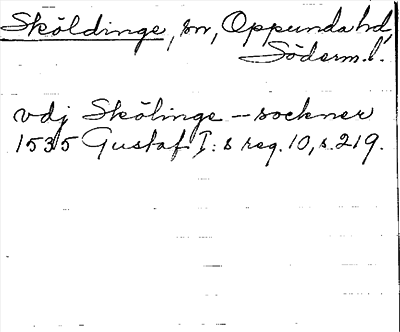 Sköldinge, sn, Oppunda hd,
Söderm.l.
vdj Skölinge – sockner
1535 Gustaf I: s reg. 10, s. 219.